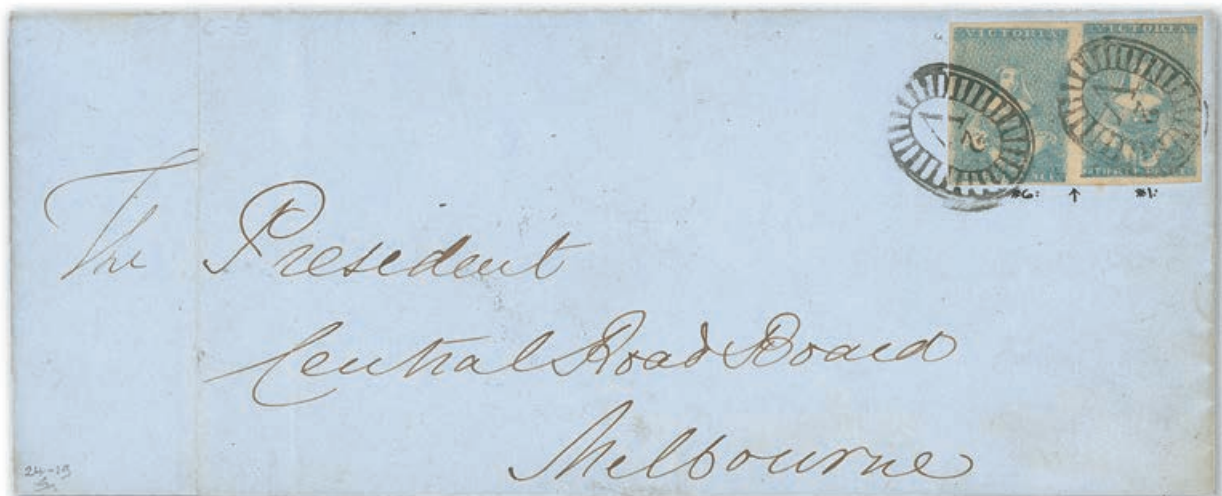 VICTORIA VICTORIA
1 V 2 1 V 2
#6: ↑ #1:
The President
Central Road Board
Melbourne
24-19